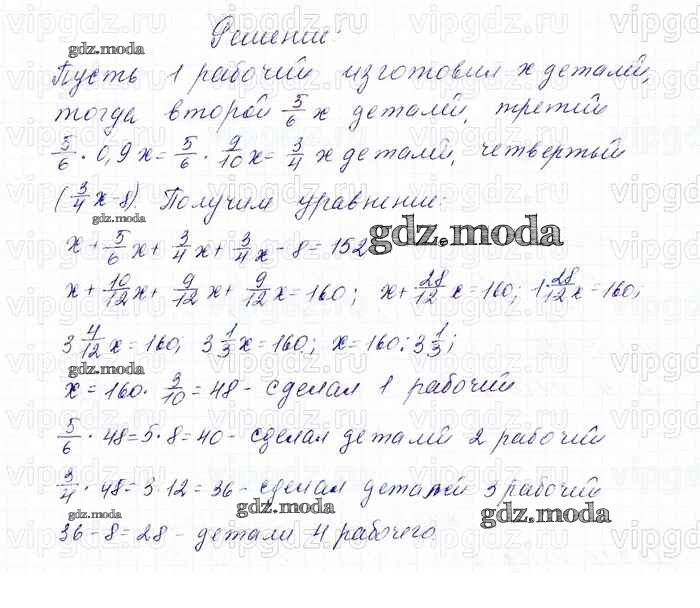 Решение:
Пусть 1 рабочий изготовил x деталей,
тогда второй 5/6 x деталей, третий
5/6 · 0,9x = 5/6 · 9/10 x = 3/4 x деталей, четвертый
(3/4 x - 8). Получим уравнение:
x + 5/6 x + 3/4 x + 3/4 x - 8 = 152
x + 10/12 x + 9/12 x + 9/12 x = 160; x + 28/12 x = 160; 1 28/12 x = 160;
3 4/12 x = 160; 3 1/3 x = 160; x = 160 : 3 1/3;
x = 160 · 3/10 = 48 - сделал 1 рабочий
5/6 · 48 = 5 · 8 = 40 - сделал деталей 2 рабочий
3/4 · 48 = 3 · 12 = 36 - сделал деталей 3 рабочий
36 - 8 = 28 - детали 4 рабочего
gdz.moda
gdz.moda
gdz.moda
gdz.moda
gdz.moda
gdz.moda
gdz.moda
gdz.moda
vipgdz.ru